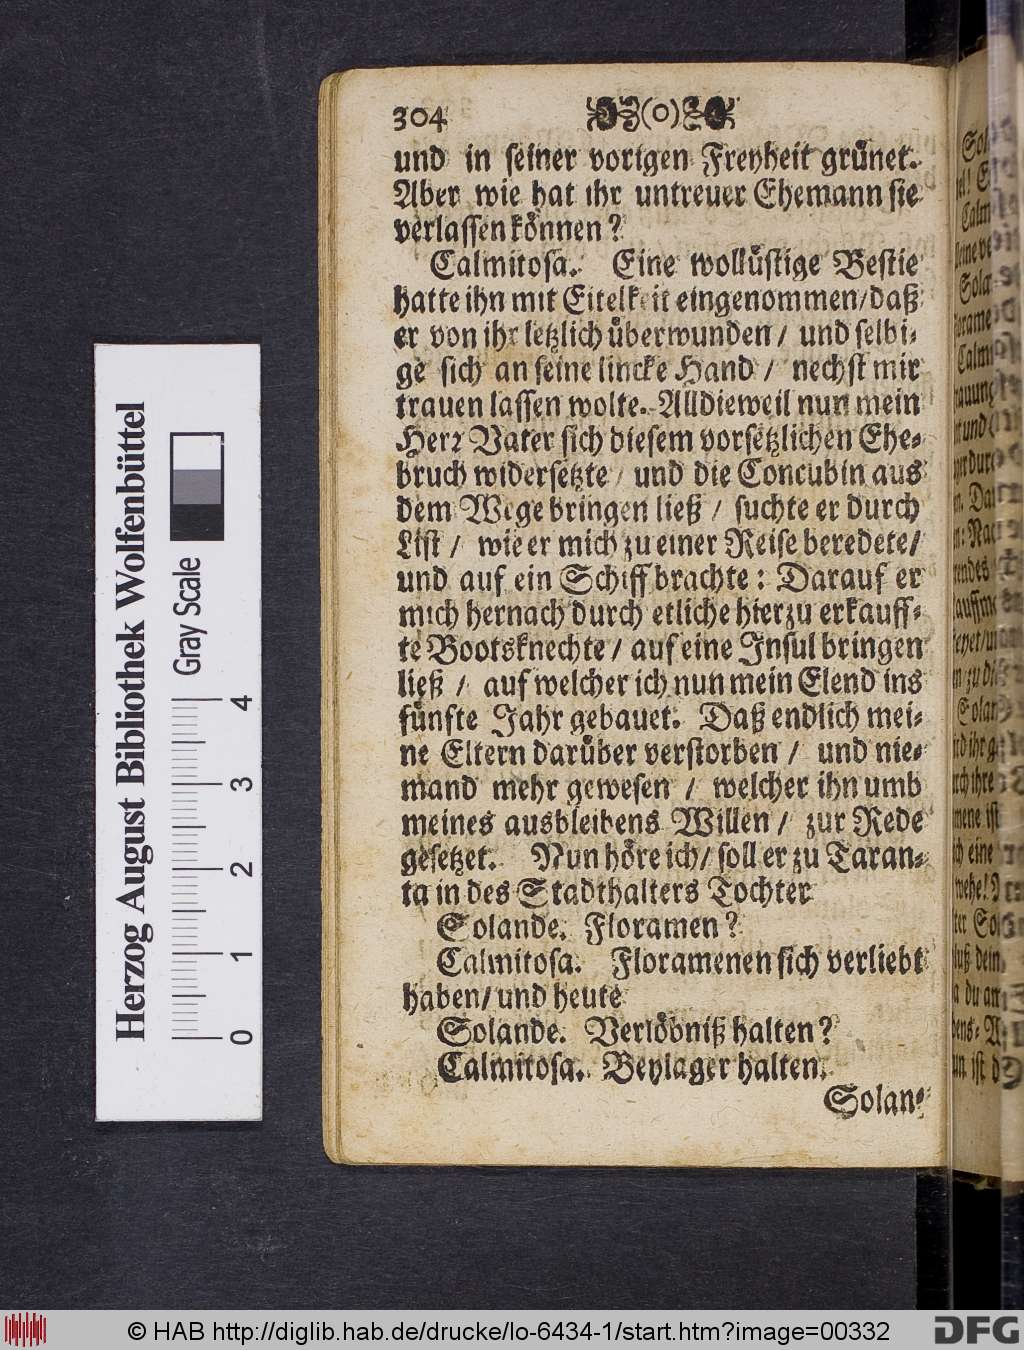 304 (o)
und in seiner vorigen Freyheit grünet.
Aber wie hat ihr untreuer Ehemann sie
verlassen können?
Calmitosa. Eine wollüstige Bestie
hatte ihn mit Eitelkeit eingenommen/ daß
er von ihr letzlich überwunden/ und selbi-
ge sich an seine lincke Hand/ nechst mir
trauen lassen wolte. Alldieweil nun mein
Herr Vater sich diesem vorsetzlichen Ehe-
bruch widersetzte/ und die Concubin aus
dem Wege bringen ließ/ suchte er durch
List/ wie er mich zu einer Reise beredete/
und auf ein Schiff brachte: Darauf er
mich hernach durch etliche hierzu erkauff-
te Bootsknechte/ auf eine Insul bringen
ließ/ auf welcher ich nun mein Elend ins
fünfte Jahr gebauet. Daß endlich mei-
ne Eltern darüber verstorben/ und nie-
mand mehr gewesen/ welcher ihn umb
meines ausbleibens Willen/ zur Rede
gesetzet. Nun höre ich/ soll er zu Taran-
ta in des Stadthalters Tochter
Solande. Floramen?
Calmitosa. Floramenen sich verliebt
haben/ und heute
Solande. Verlöbniß halten?
Calmitosa. Beylager halten.
Solan-
Herzog August Bibliothek Wolfenbüttel
Gray Scale
0 1 2 3 4
© HAB http://diglib.hab.de/drucke/lo-6434-1/start.htm?image=00332
DFG